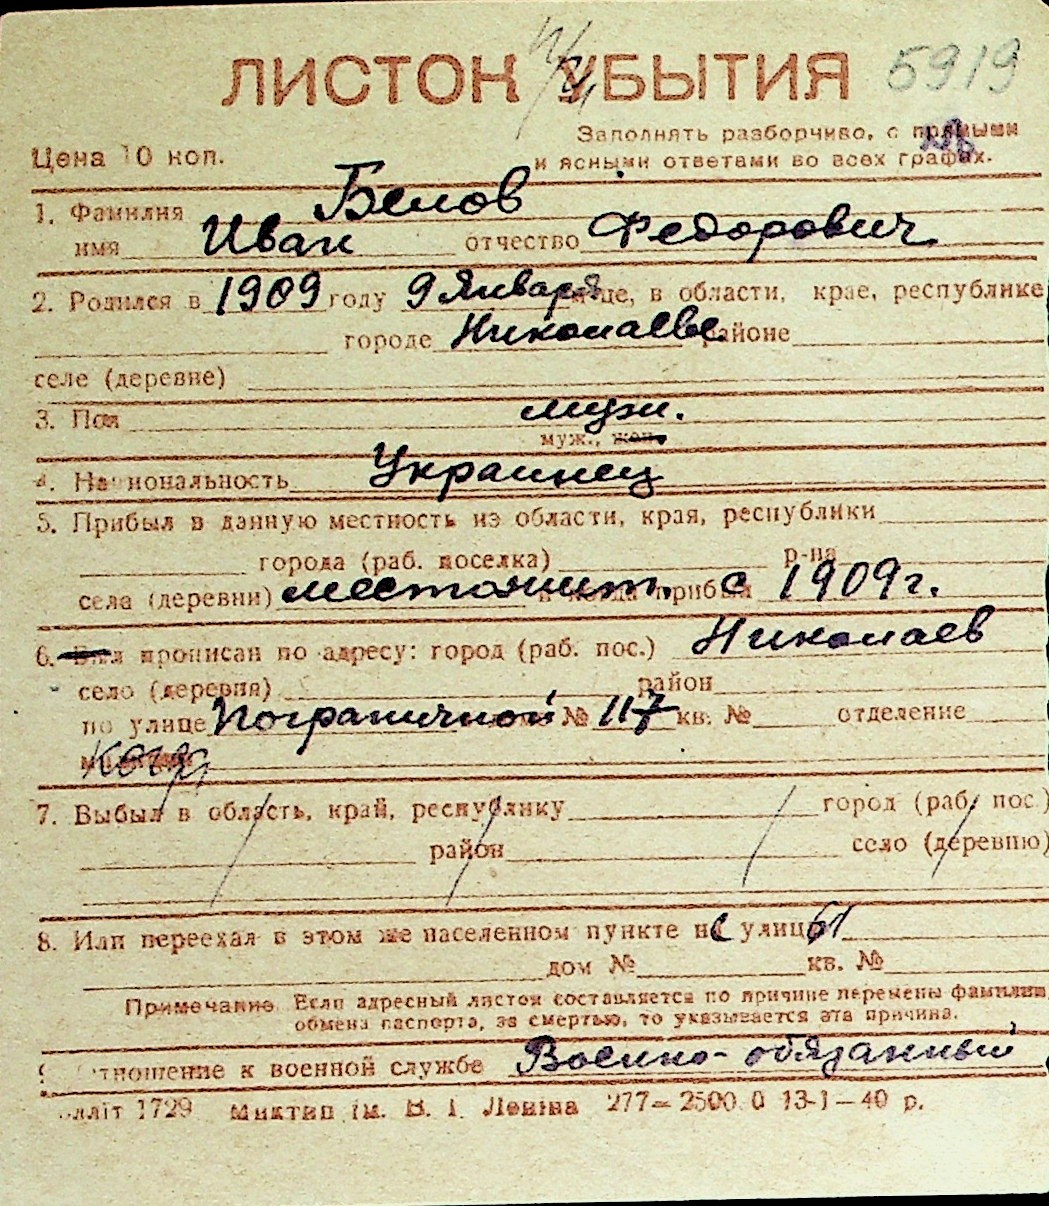 ЛИСТОК УБЫТИЯ 5919
Заполнять разборчиво, с прямыми
Цена 10 коп. и ясными ответами во всех графах.
1. Фамилия Белов
имя Иван отчество Федорович
2. Родился в 1909 году 9 Января це, в области, крае, республике
городе Николаеве районе
селе (деревне)
3. Пол муж.
муж., жен.
4. Национальность Украинец
5. Прибыл в данную местность из области, края, республики
города (раб. поселка) р-на
села (деревни) местожит. прибыл с 1909 г.
6. Был прописан по адресу: город (раб. пос.) Николаев
село (деревня) район
по улице Пограничной № 117 кв. № отделение
7. Выбыл в область, край, республику город (раб. пос.)
район село (деревню)
8. Или переехал в этом же населенном пункте на улицу
дом № кв. №
Примечание. Если адресный листок составляется по причине перемены фамилии,
обмена паспорта, за смертью, то указывается эта причина.
тношение к военной службе Военно-обязанный
лліт 1729 Миктип ім. В. І. Леніна 277—2500 0 13-1—40 р.